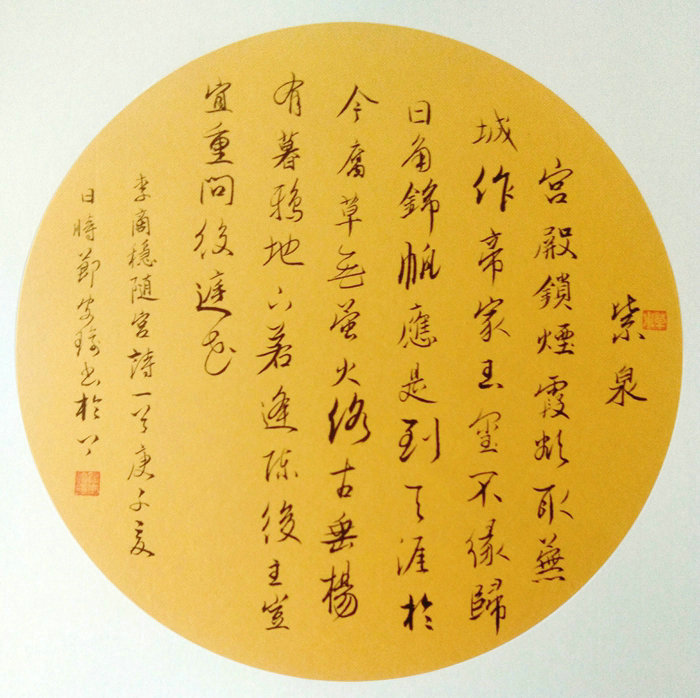 紫泉
宮殿鎖煙霞欲取蕪
城作帝家玉璽不緣歸
日角錦帆應是到天涯於
今腐草無螢火終古垂楊
有暮鴉地下若逢陳後主豈
宜重問後庭花
李商隱隨宮詩一首庚子夏
日時鄭安书於